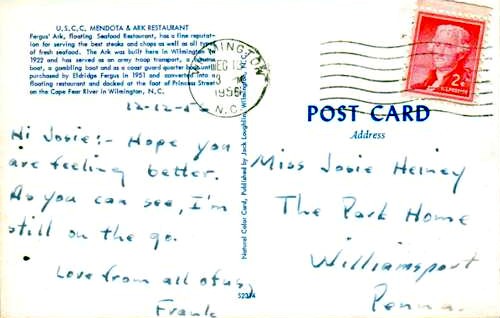 U.S.C.C. MENDOTA & ARK RESTAURANT
Fergus' Ark, floating Seafood Restaurant, has a fine reputa-
tion for serving the best steaks and chops as well as all types
of fresh seafood. The Ark was built here in Wilmington in
1922 and has served as an army troop transport, a banana
boat, a gambling boat and as a coast guard quarter boat until
purchased by Eldridge Fergus in 1951 and converted into a
floating restaurant and docked at the foot of Princess Street
on the Cape Fear River in Wilmington, N.C.
12-12-5
Hi Josie:- Hope you
are feeling better.
As you can see, I'm
still on the go.
Love from all of us,
Frank
Natural Color Card, Published by Jack Loughlin, Wilmington, N.C.
52374
WILMINGTON
DEC 13
1956
N.C.
2¢
U.S. POSTAGE
POST CARD
Address
Miss Josie Heiney
The Park Home
Williamsport
Penna.